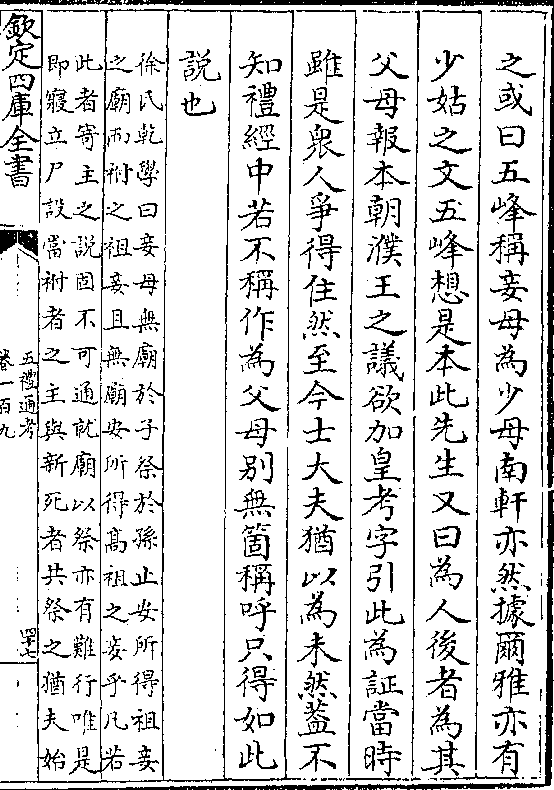 之或曰五峰稱妾母為少母南軒亦然據爾雅亦有
少姑之文五峰想是本此先生又曰為人後者為其
父母報本朝濮王之議欲加皇考字引此為証當時
雖是衆人爭得住然至今士大夫猶以為未然葢不
知禮經中若不稱作為父母别無箇稱呼只得如此
說也
徐氏乾學曰妾母無廟於子祭於孫止安所得祖妾
之廟而祔之祖妾且無廟安所得髙祖之妾乎凡若
此者寄主之説固不可通就廟以祭亦有難行唯是
即寢立尸設當祔者之主與新死者共祭之猶夫始
欽定四庫全書
五禮通考
卷一百九
四十七